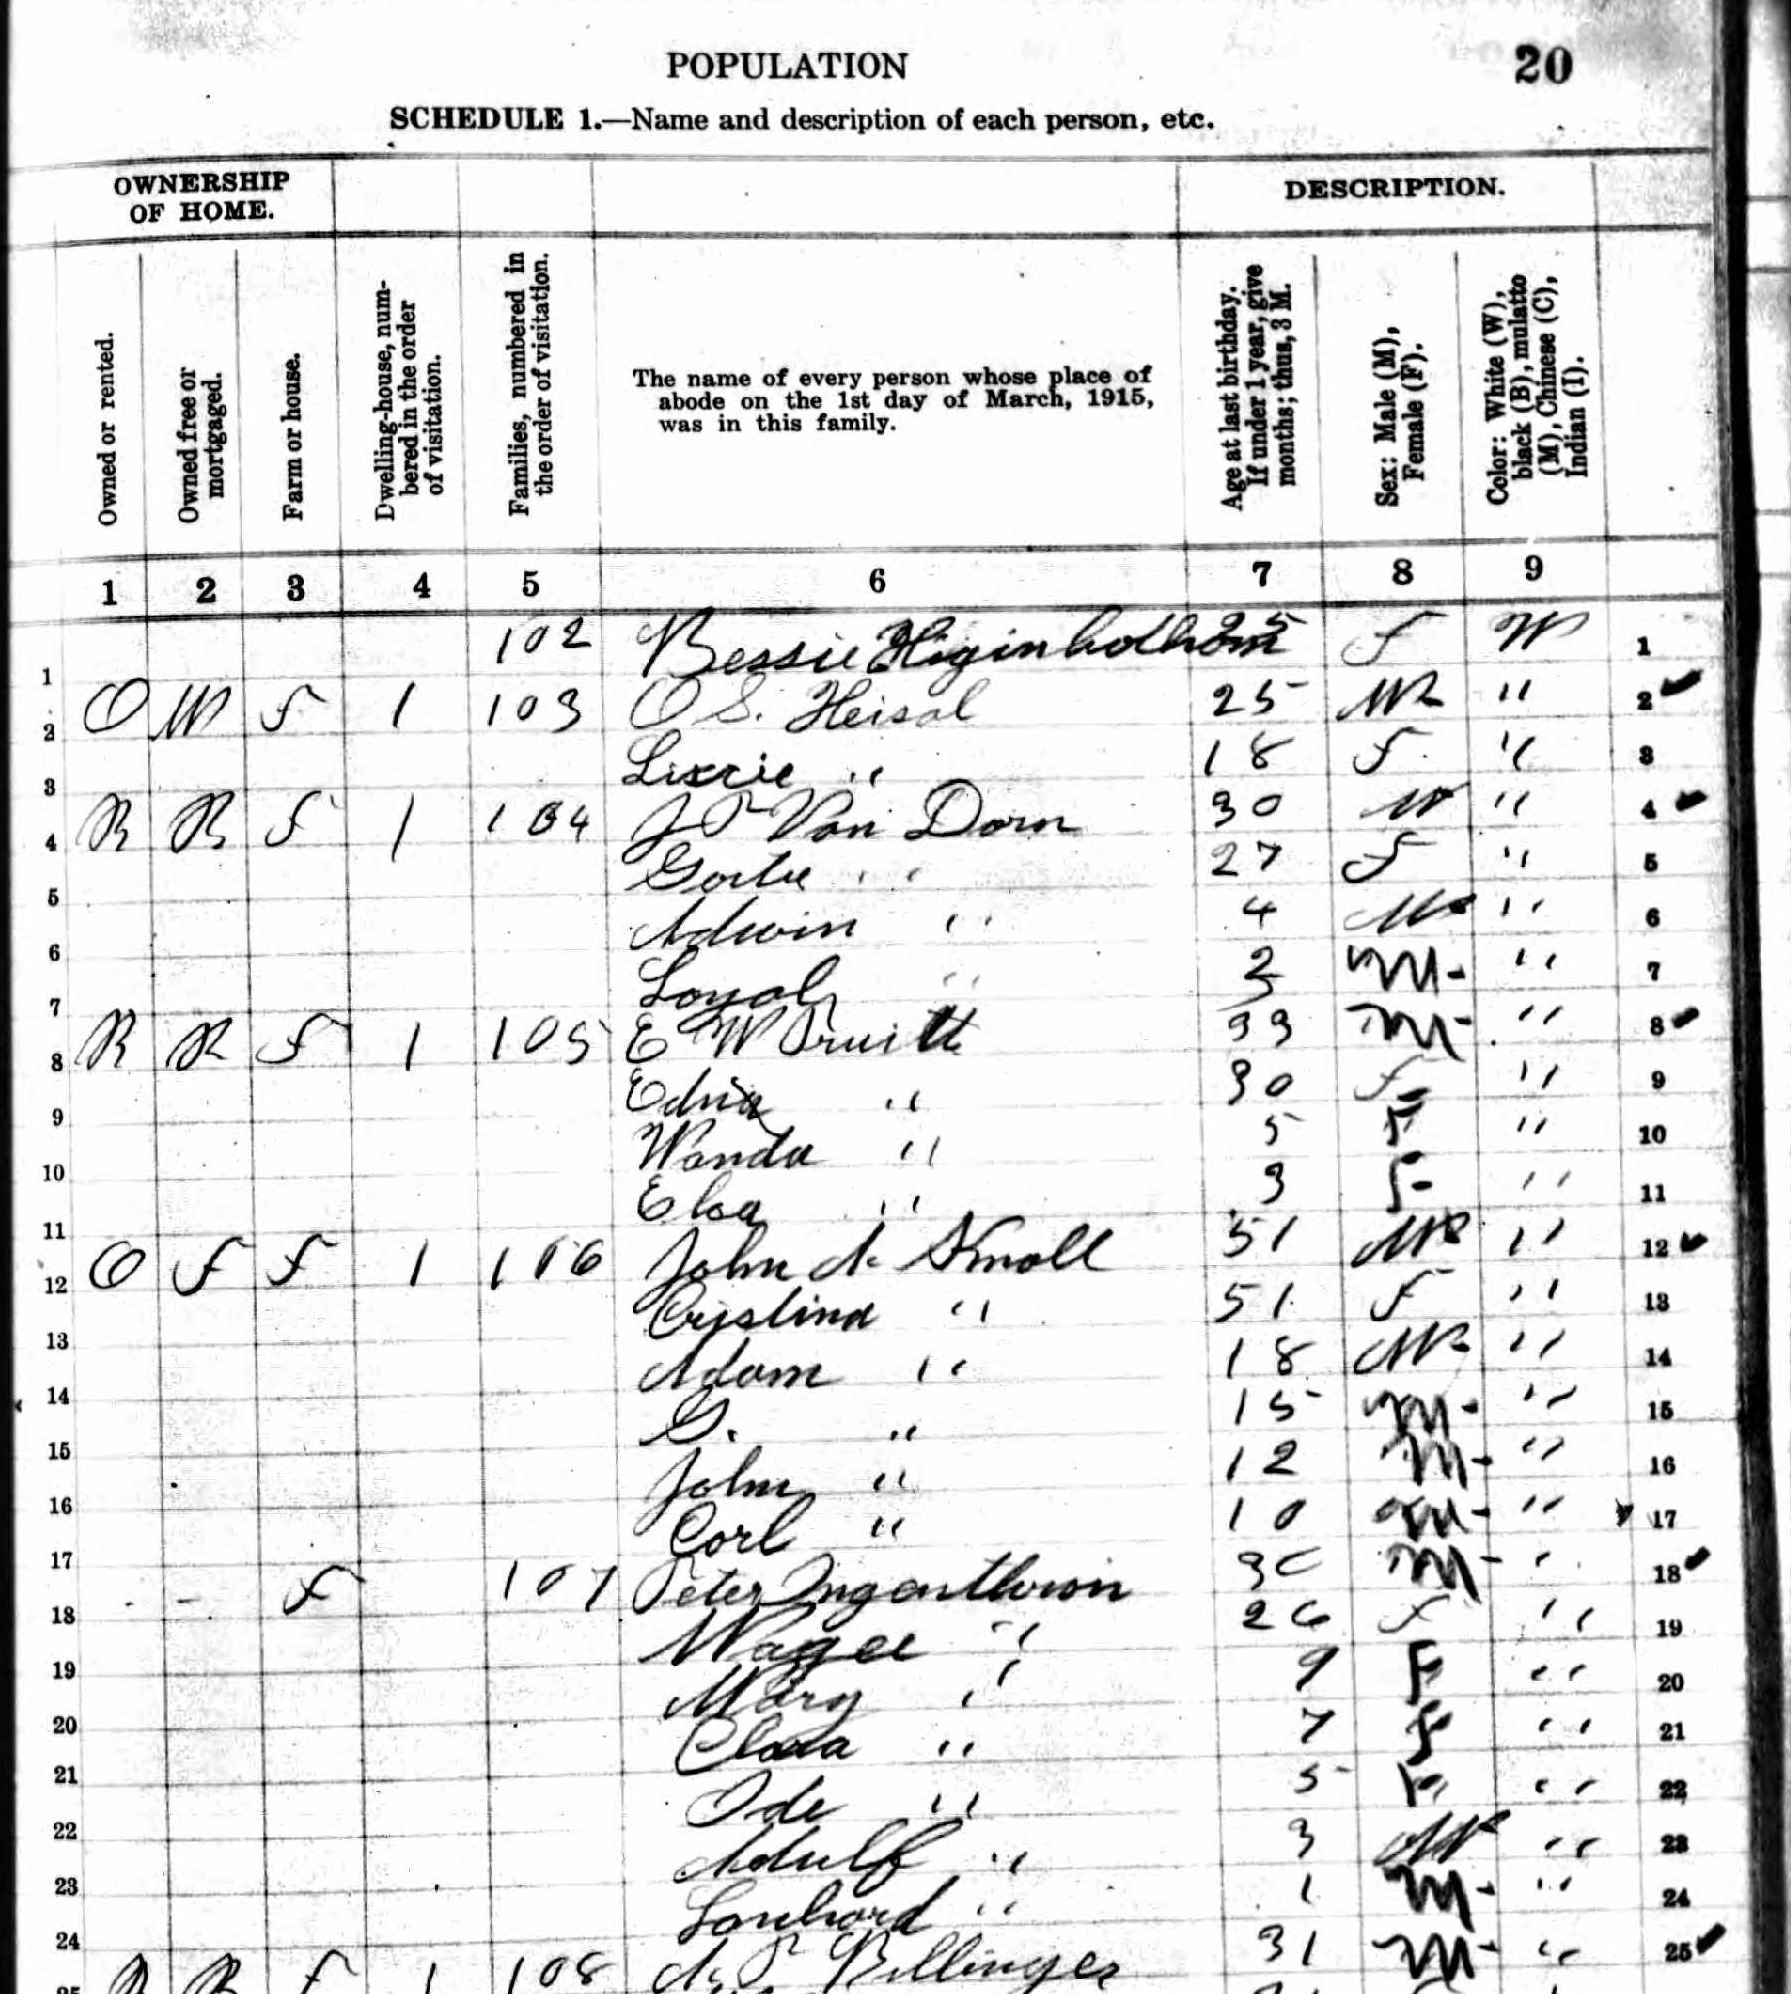 POPULATION 20
SCHEDULE 1.—Name and description of each person, etc.
OWNERSHIP OF HOME. DESCRIPTION.
Owned or rented.
Owned free or mortgaged.
Farm or house.
Dwelling-house, numbered in the order of visitation.
Families, numbered in the order of visitation.
The name of every person whose place of
abode on the 1st day of March, 1915,
was in this family.
Age at last birthday. If under 1 year, give months; thus, 3 M.
Sex: Male (M), Female (F).
Color: White (W), black (B), mulatto (M), Chinese (C), Indian (I).
1 2 3 4 5 6 7 8 9
1 102 Bessie Higinbothom 25 F W 1
2 O M F 1 103 O S. Heisal 25 M " 2
3 Lizzie " 18 F " 3
4 R R F 1 104 J P Van Dorn 30 M " 4
5 " 27 F " 5
6 Adwin " 4 M " 6
7 Loyal " 2 M " 7
8 R R F 1 105 E W Pruitt 33 M " 8
9 Edna " 30 F " 9
10 Wanda " 5 F " 10
11 " 3 F " 11
12 O F F 1 106 John A. Knoll 51 M " 12
13 Cristina " 51 F " 13
14 Adam " 18 M " 14
15 G. " 15 M " 15
16 John " 12 M " 16
17 Carl " 10 M " 17
18 - - F 107 Peter Ingenthron 30 M " 18
19 " 26 F " 19
20 Mary " 9 F " 20
21 Clara " 7 F " 21
22 " 5 F " 22
23 Adulf " 3 M " 23
24 " 1 M " 24
25 R R F 1 108 A. P. Billinger 31 M " 25